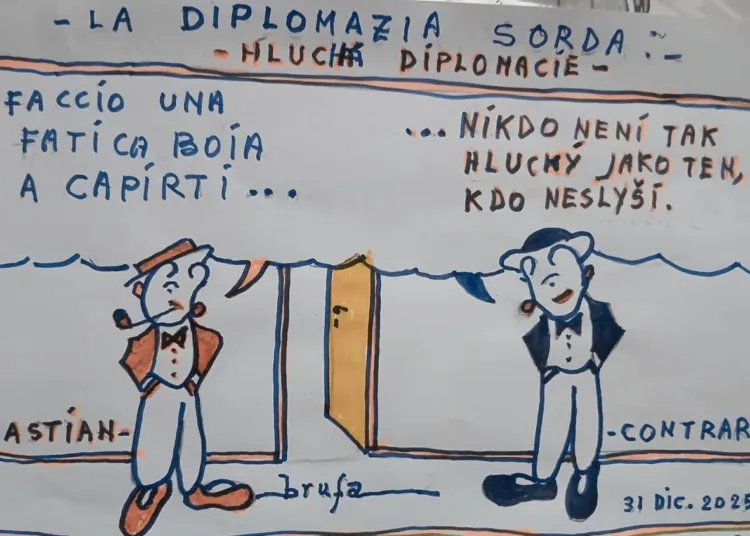 - LA DIPLOMAZIA SORDA :-
- HLUCHÁ DIPLOMACIE -
FACCIO UNA
FATICA BOIA
A CAPIRTI...
...NIKDO NENÍ TAK
HLUCHÝ JAKO TEN,
KDO NESLYŠÍ.
ASTIAN-
-CONTRAR
brufa
31 DIC. 2025